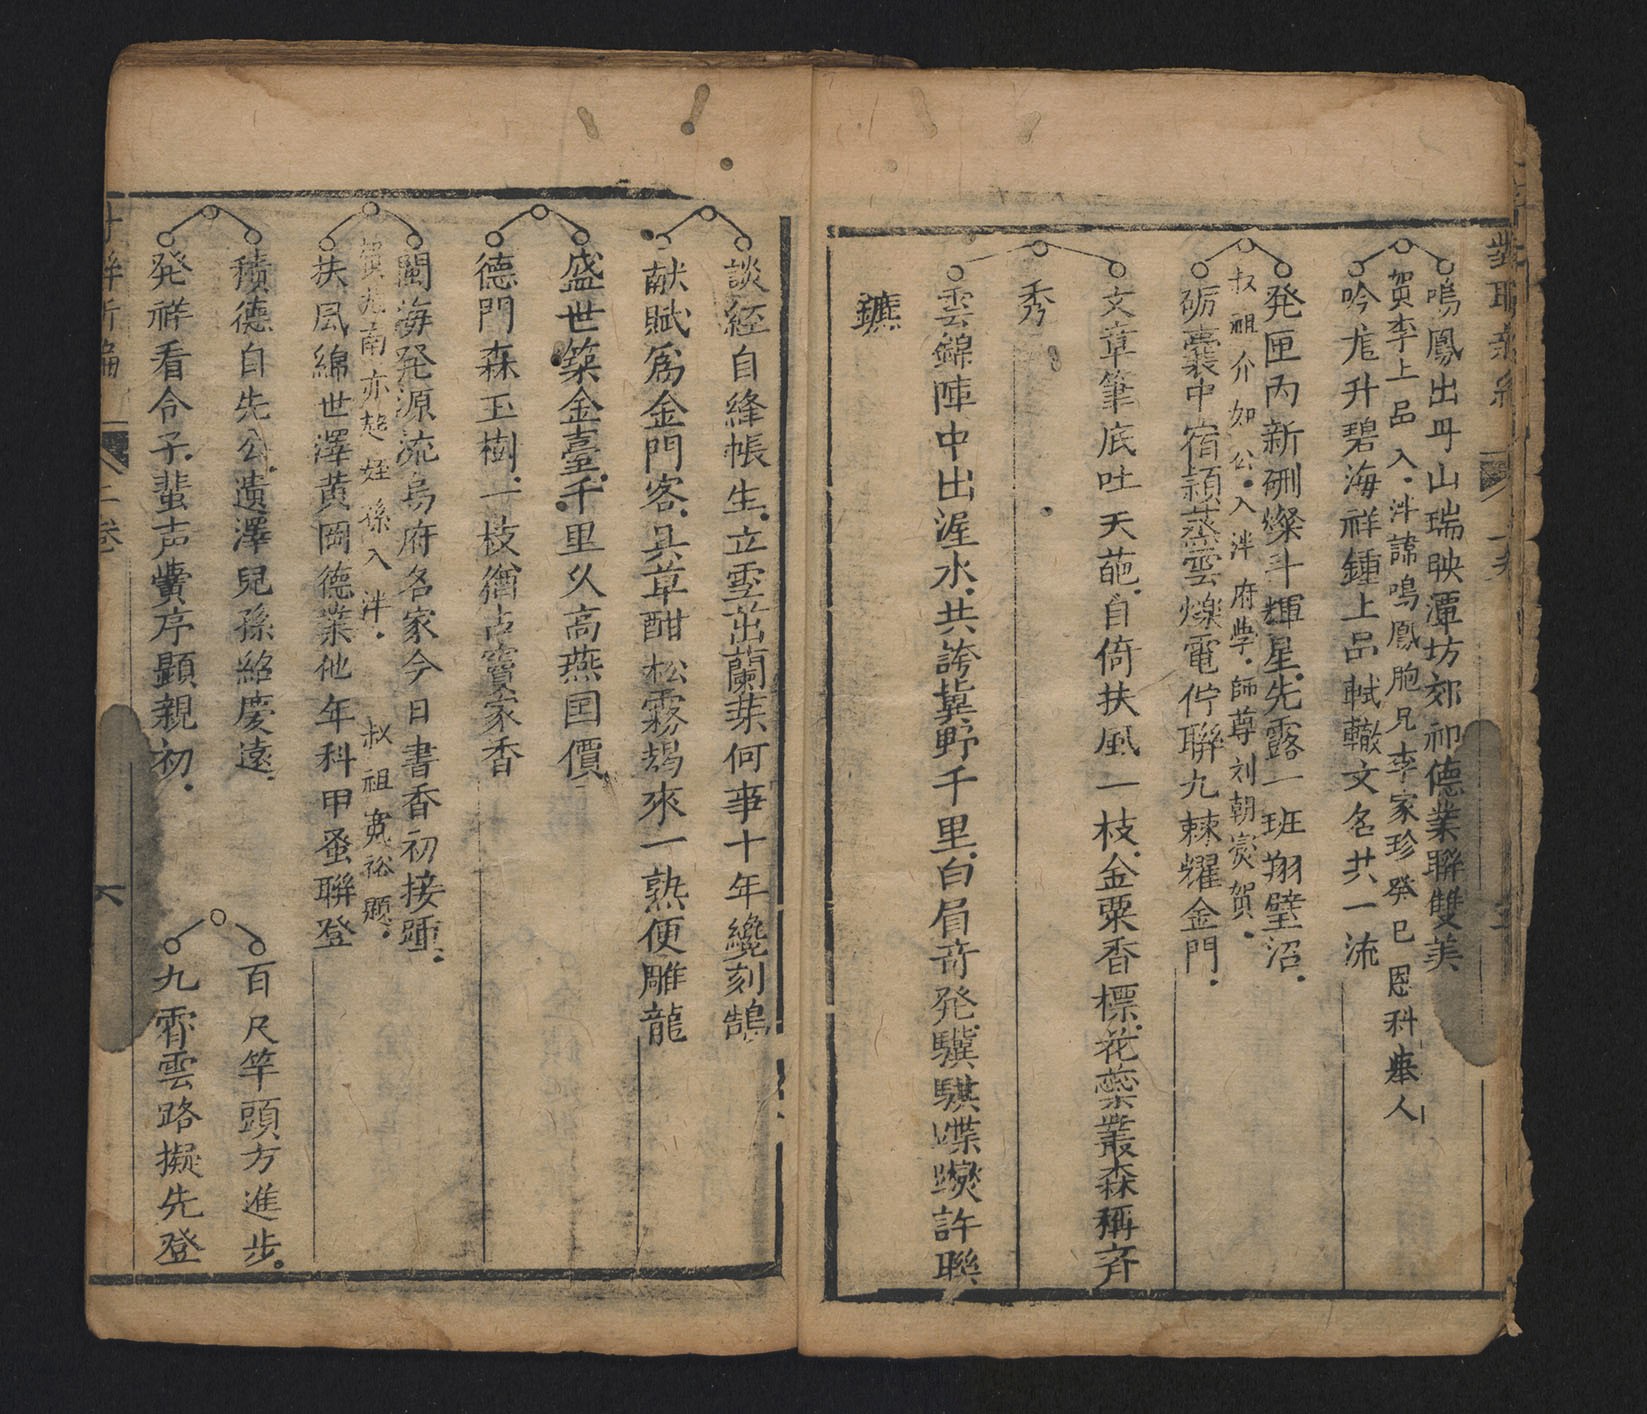 鳴鳳出丹山瑞映潭坊郊祁德業聯雙美
賀李上品入泮諱鳴鳳胞兄李家珍癸巳恩科舉人
吟龍升碧海祥鍾上品軾轍文名共一流
発匣丙新硎燦斗輝星先露一班翔璧沼
叔祖介如公入泮府學師尊刘朝賓賀
砺囊中宿頴蒸雲爍電佇聯九棘耀金門
文章筆底吐天葩自倚扶風一枝金粟香標花蘂叢森稱斉
秀
雲錦陣中出渥水共誇冀野千里白眉竒発驥騏蹀躞許聯
鑣
談經自絳帳生立雪茁蘭葉何事十年纔刻鵠
献賦為金門客具草酣松霧朅來一熟便雕龍
盛世築金臺千里久高燕囯價
德門森玉樹一枝猶占竇家香
閩海発源流烏府名家今日書香初接踵
賀九南亦趁姪孫入泮 叔祖寬裕題
扶風綿世澤黄岡德業他年科甲蚤聯登
積德自先公遺澤兒孫紹慶遠
発祥看令子蜚声黌序顕親初
百尺竿頭方進步
九霄雲路擬先登
二卷
六